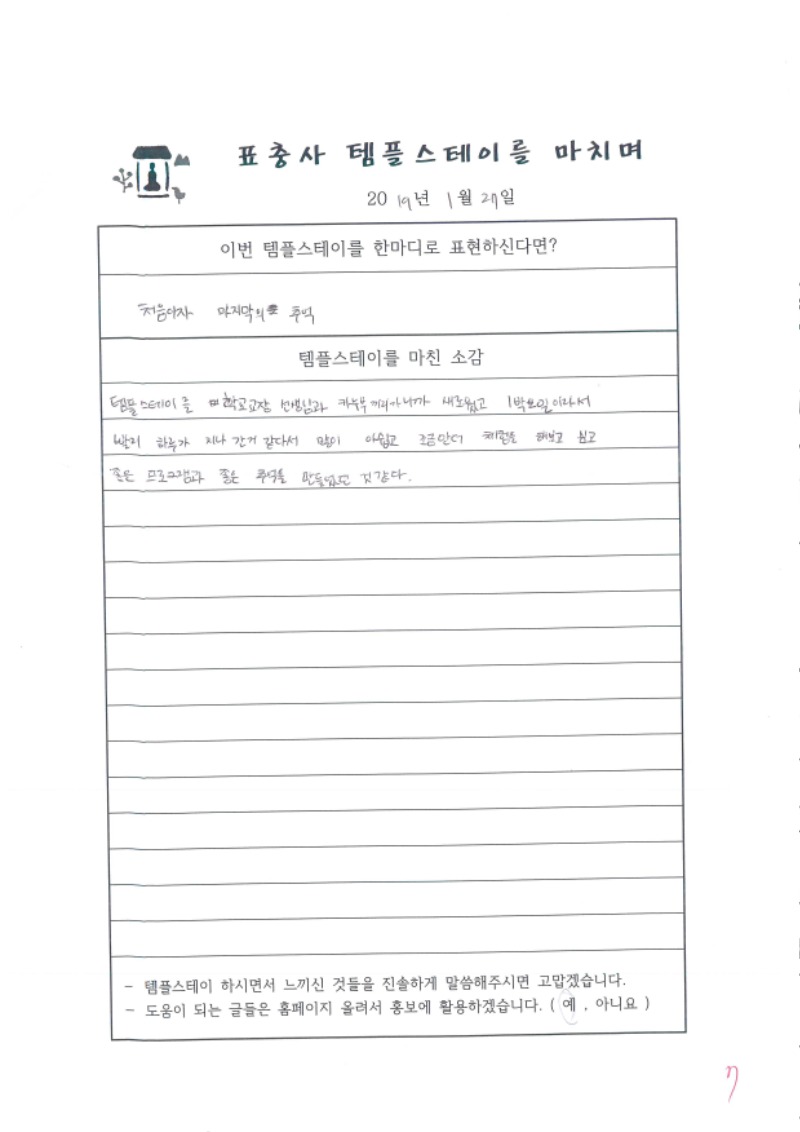 표충사 템플스테이를 마치며
2019년 1월 27일
이번 템플스테이를 한마디로 표현하신다면?
처음이자 마지막의 추억
템플스테이를 마친 소감
템플스테이를 학교교장 선생님과 새로웠고 1박2일이라서
빨리 하루가 지나 간거 같다서 많이 아쉽고 조금만더 체험을 해보고 싶고
좋은 프로그램과 좋은 추억을 만들었던 것같다.
- 템플스테이 하시면서 느끼신 것들을 진솔하게 말씀해주시면 고맙겠습니다.
- 도움이 되는 글들은 홈페이지 올려서 홍보에 활용하겠습니다. ( 예 , 아니요 )
7